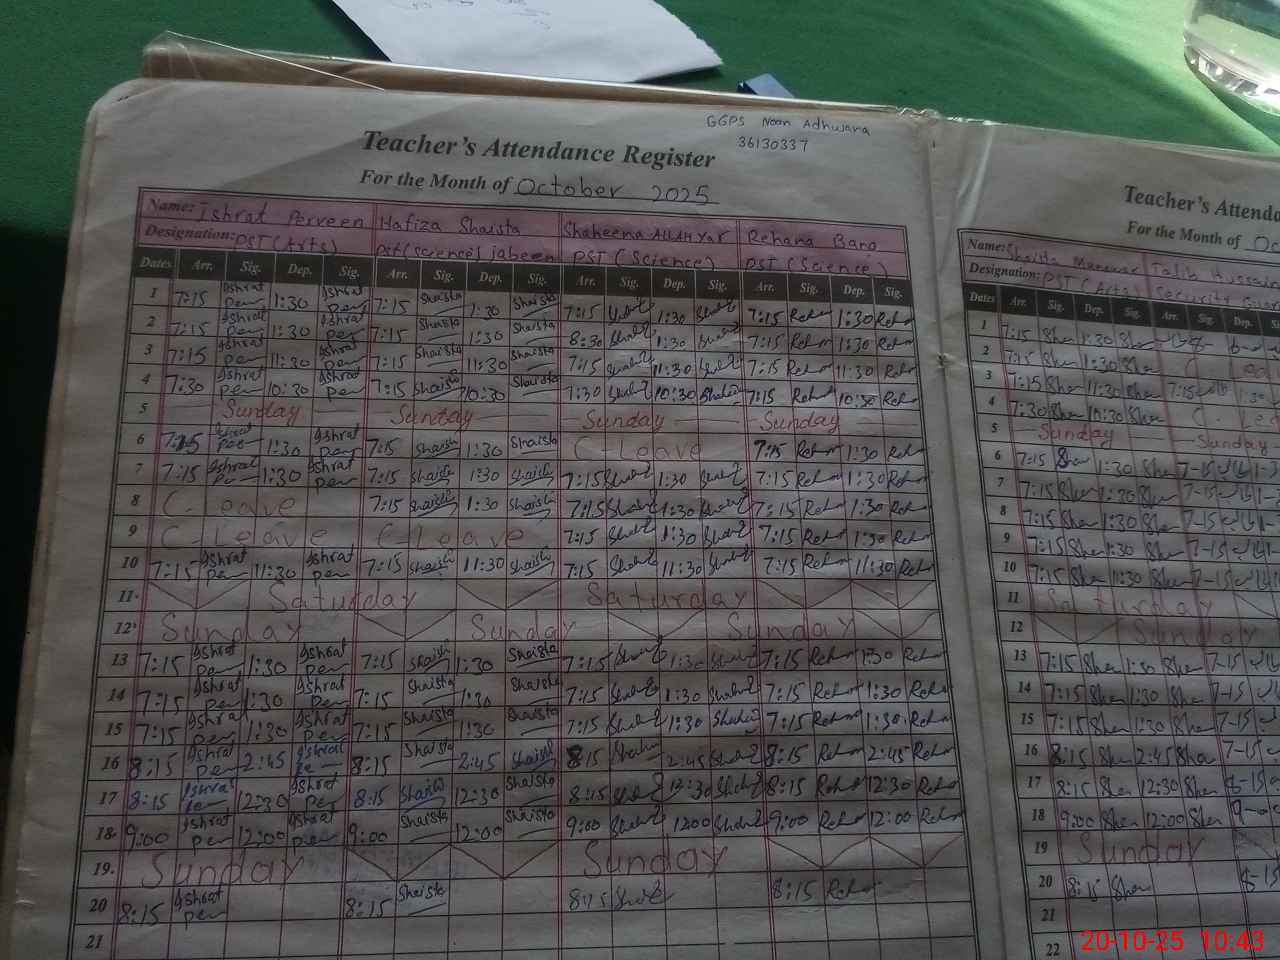 GGPS Noon Adhwana
36130337
Teacher's Attendance Register
For the Month of October 2025
Name: Ishrat Perveen Hafiza Shaista Shaheena ALLAH Yar Rehana Bano
Designation: PST (Arts) PST (science) jabeen PST (Science) PST (Science)
Dates Arr. Sig. Dep. Sig. Arr. Sig. Dep. Sig. Arr. Sig. Dep. Sig. Arr. Sig. Dep. Sig.
1 7:15 Ishrat Per 1:30 Ishrat Per 7:15 Shaista 1:30 Shaista 7:15 1:30 7:15 Rehm 1:30 Rehm
2 7:15 Ishrat Per 1:30 Ishrat Per 7:15 Shaista 1:30 Shaista 8:30 1:30 7:15 Rehm 1:30 Rehm
3 7:15 Ishrat Per 11:30 Ishrat Per 7:15 Shaista 11:30 Shaista 7:15 11:30 7:15 Rehm 11:30 Rehm
4 7:30 Ishrat Per 10:30 Ishrat Per 7:15 Shaista 10:30 Shaista 7:30 10:30 7:15 Rehm 10:30 Rehm
5 Sunday Sunday Sunday Sunday
6 7:15 Ishrat Per 1:30 Ishrat Per 7:15 Shaista 1:30 Shaista C-Leave 7:15 Rehm 1:30 Rehm
7 7:15 Ishrat Per 1:30 Ishrat Per 7:15 Shaista 1:30 Shaista 7:15 1:30 7:15 Rehm 1:30 Rehm
8 C-Leave 7:15 Shaista 1:30 Shaista 7:15 1:30 7:15 Rehm 1:30 Rehm
9 C-Leave C-Leave 7:15 1:30 7:15 Rehm 1:30 Rehm
10 7:15 Ishrat Per 11:30 Ishrat Per 7:15 Shaista 11:30 Shaista 7:15 11:30 7:15 Rehm 11:30 Rehm
11 Saturday Saturday
12 Sunday Sunday Sunday
13 7:15 Ishrat Per 1:30 Ishrat Per 7:15 Shaista 1:30 Shaista 7:15 1:30 7:15 Rehm 1:30 Rehm
14 7:15 Ishrat Per 1:30 Ishrat Per 7:15 Shaista 1:30 Shaista 7:15 1:30 7:15 Rehm 1:30 Rehm
15 7:15 Ishrat Per 1:30 Ishrat Per 7:15 Shaista 1:30 Shaista 7:15 1:30 7:15 Rehm 1:30 Rehm
16 8:15 Ishrat Per 2:45 Ishrat Per 8:15 Shaista 2:45 Shaista 8:15 2:45 8:15 Rehm 2:45 Rehm
17 8:15 Ishrat Per 12:30 Ishrat Per 8:15 Shaista 12:30 Shaista 8:15 12:30 8:15 Rehm 12:30 Rehm
18 9:00 Ishrat Per 12:00 Ishrat Per 9:00 Shaista 12:00 Shaista 9:00 1200 9:00 Rehm 12:00 Rehm
19 Sunday Sunday
20 8:15 Ishrat Per 8:15 Shaista 8:15 8:15 Rehm
21
Teacher's Attenda
For the Month of Oc
Name: Shaista Munawar Talib Hussain
Designation: PST (Arts) Security Guar
Dates Arr. Sig. Dep. Sig. Arr. Sig. Dep.
1 7:15 Sha 1:30 Sha
2 7:15 Sha 1:30 Sha
3 7:15 Sha 11:30 Sha 7:15 1:30
4 7:30 Sha 10:30 Sha
5 Sunday Sunday
6 7:15 Sha 1:30 Sha 7-15
7 7:15 Sha 1:30 Sha 7-15
8 7:15 Sha 1:30 Sha 7-15
9 7:15 Sha 1:30 Sha 7-15
10 7:15 Sha 11:30 Sha 7-15
11 Saturday
12 Sunday
13 7:15 Sha 1:30 Sha 7-15
14 7:15 Sha 1:30 Sha 7-15
15 7:15 Sha 1:30 Sha 7-15
16 8:15 Sha 2:45 Sha 7-15
17 8:15 Sha 12:30 Sha 8-15
18 9:00 Sha 12:00 Sha
19 Sunday
20 8:15 Sha 8-15
21
22
20-10-25 10:43